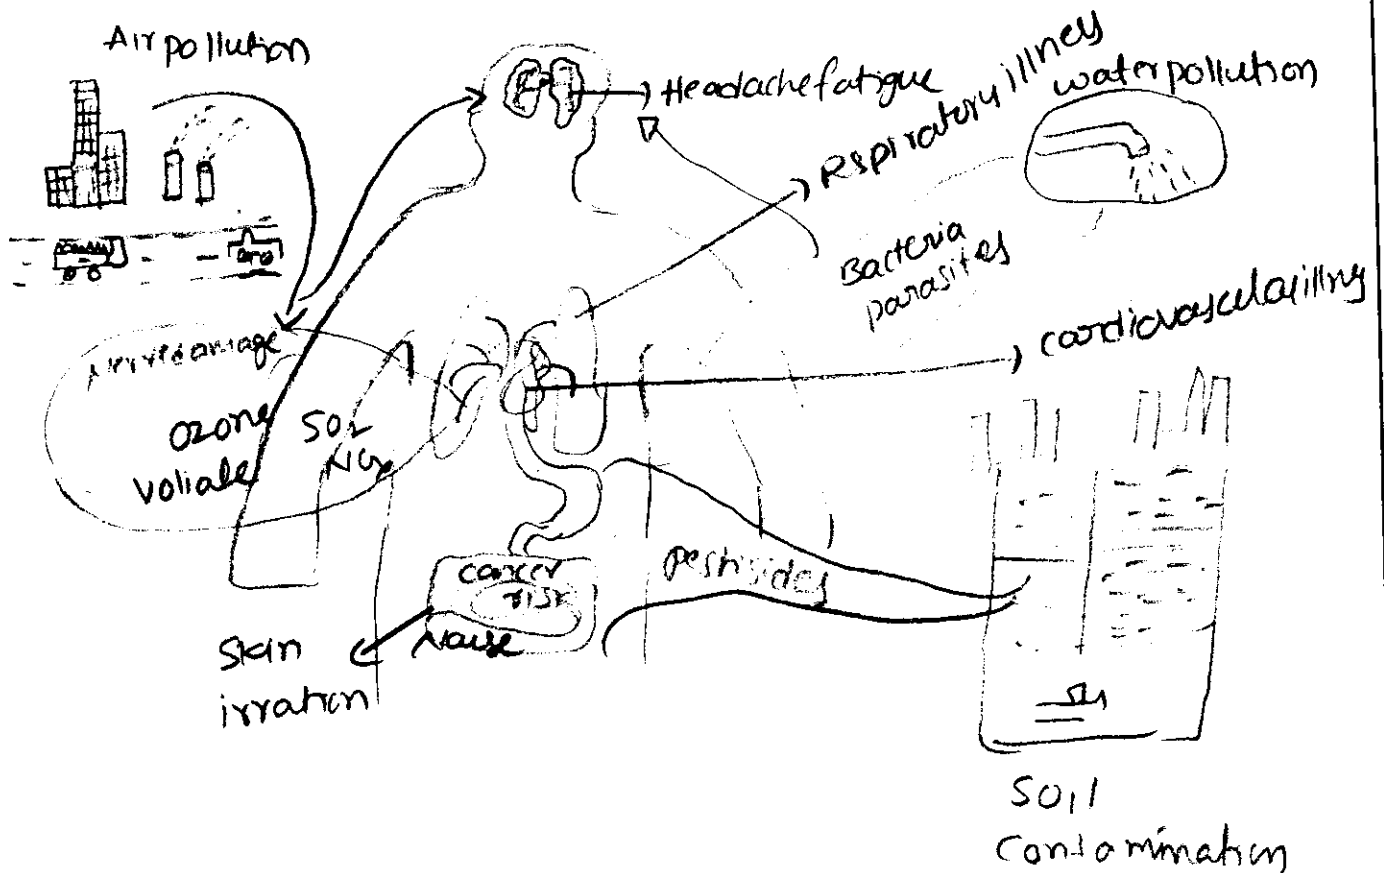 Air pollution
Headache fatigue
Rspiratory illney
water pollution
Bacteria
parasites
cardiovascula illny
Nerve damage
ozone
voliale
SO2
NOx
cancer
risk
Nause
pestisides
Skin
irration
Soil
contamination